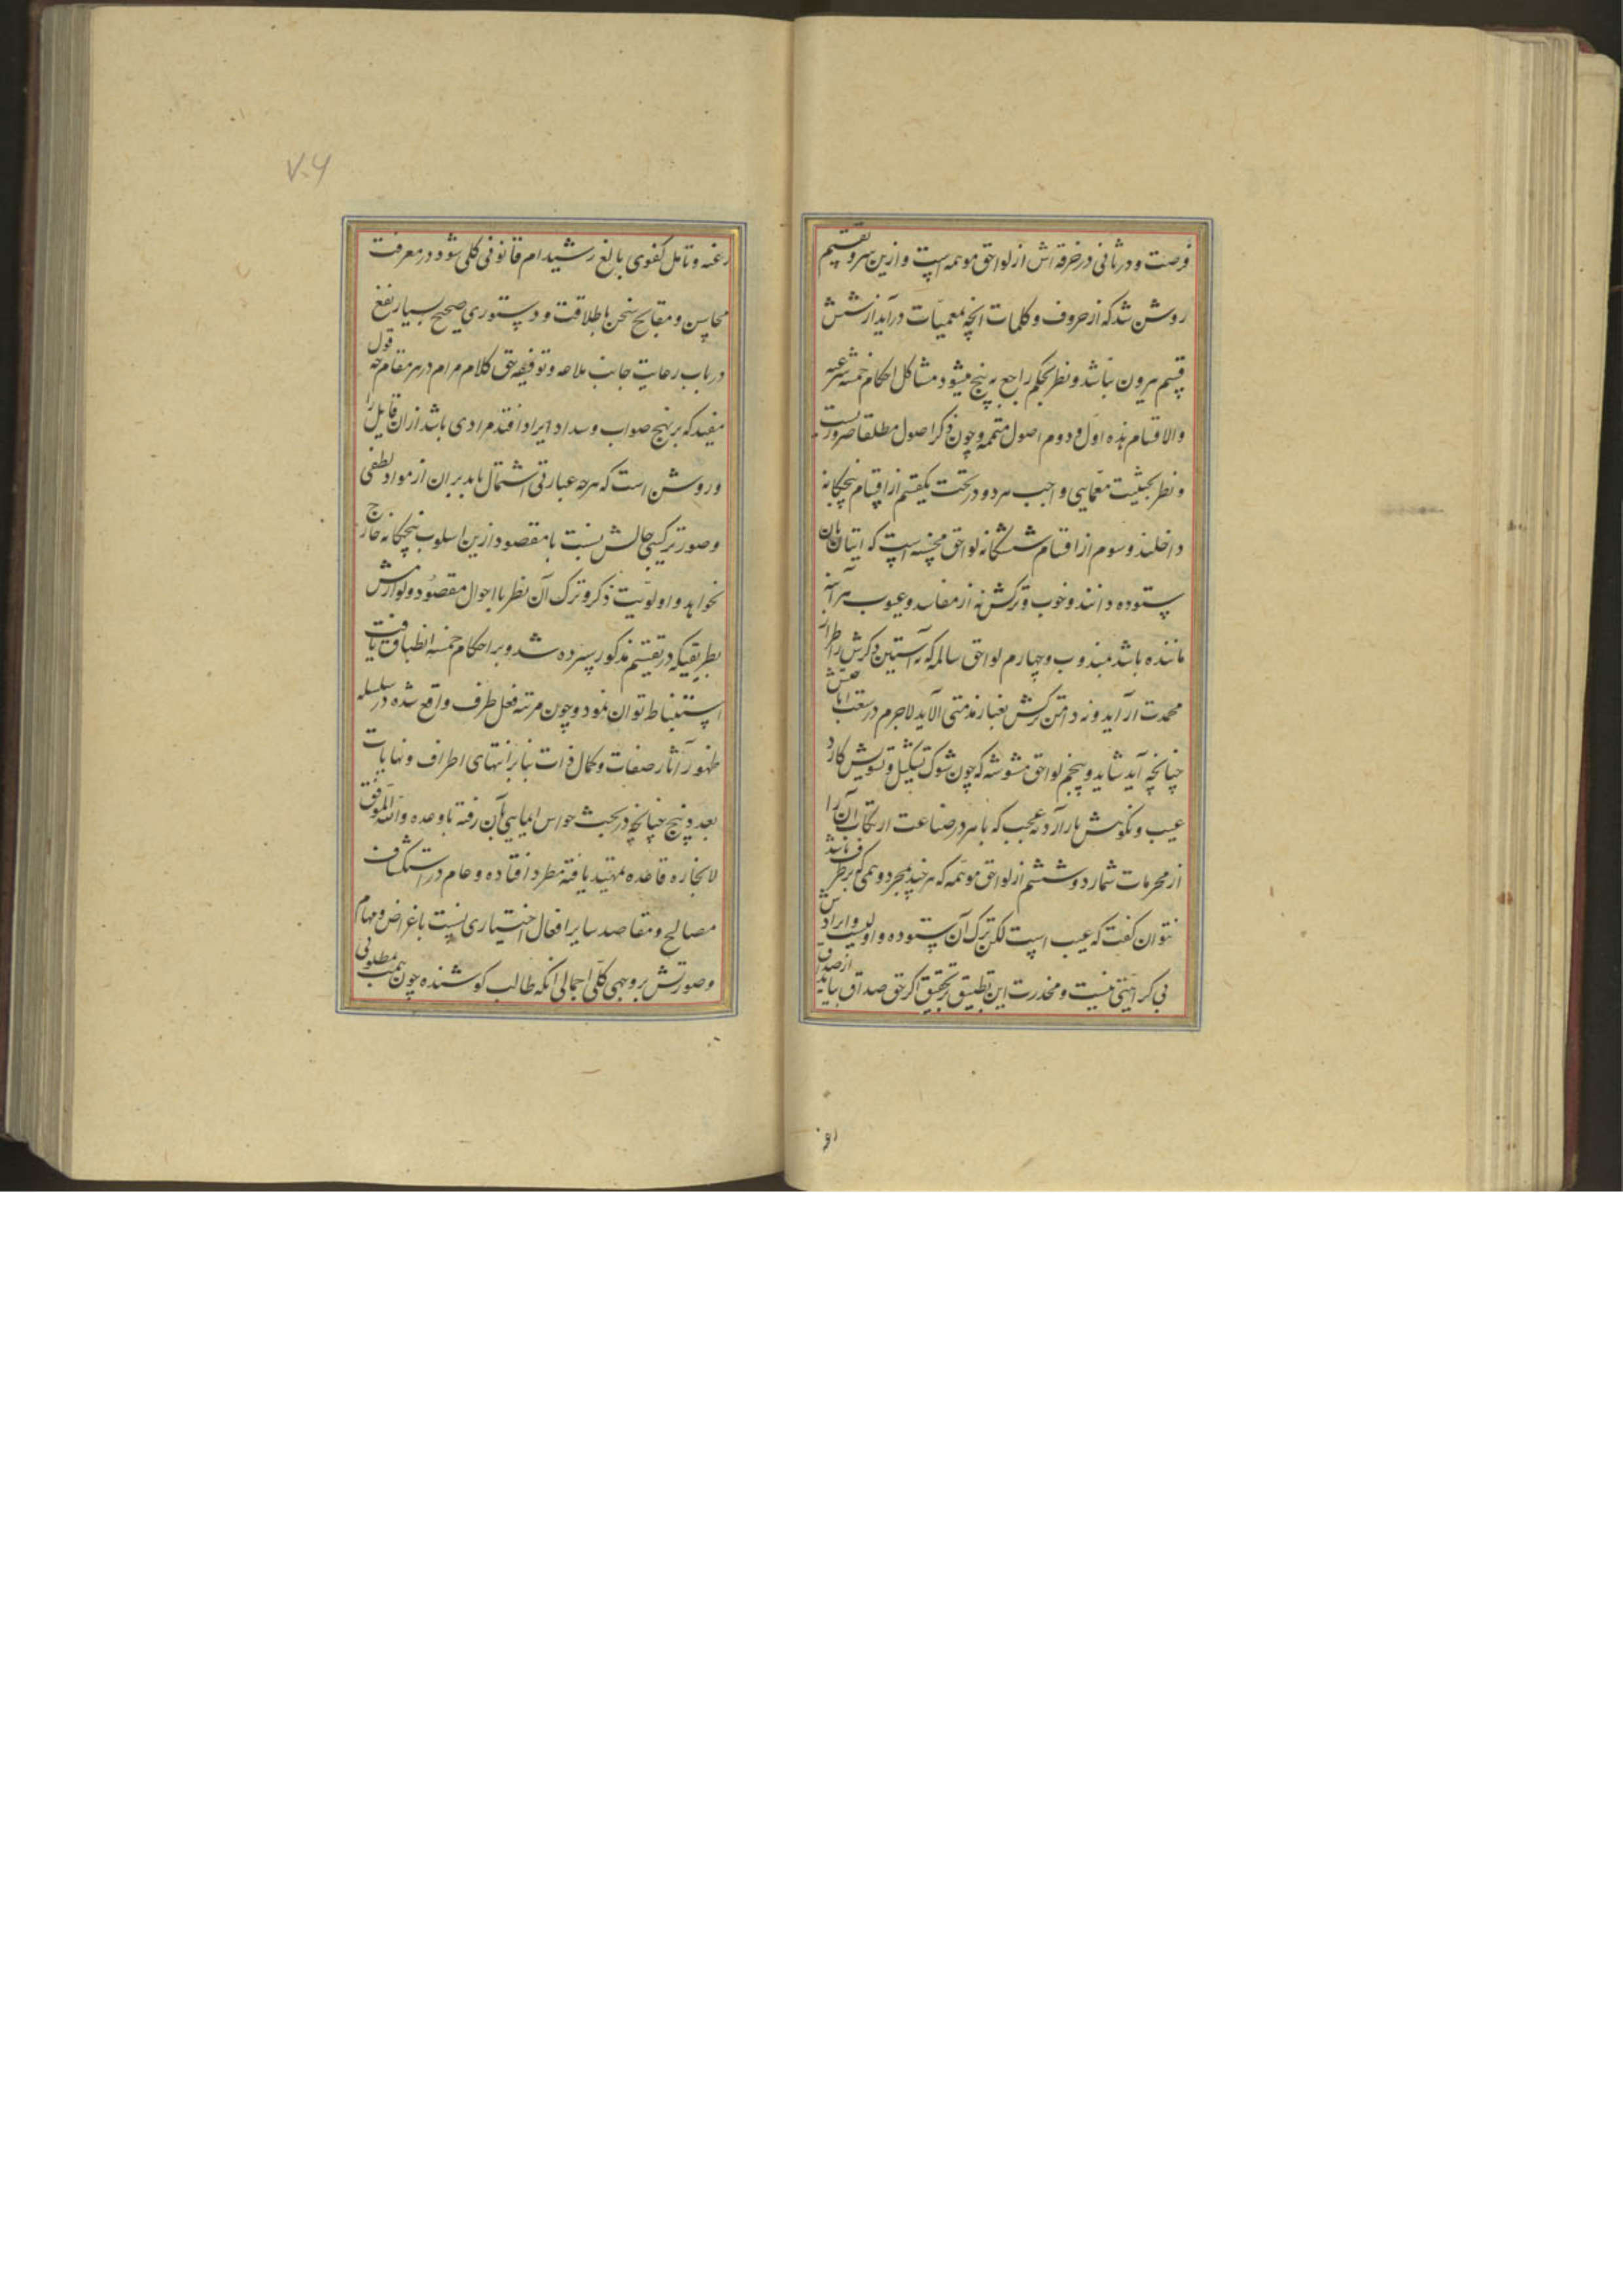 فرصت و در ثانی در خرقه اش از لواحق موهمه است و ازین سر و تقسیم
روشن شد که از حروف و کلمات انچه بمعمیات درآید از شش
قسم بیرون نباشد و نظر بحکم راجع به پنج میشود مشاکل احکام خمسه شرعیه
والاقسام هذه اول و دوم اصول متممه و چون ذکر اصول مطلقا ضروریست
و نظر بحیثیت معمایی واجب هر دو در تحت یکقسم از اقسام پنجگانه
داخلند و سوم از اقسام ششگانه لواحق محسنه است که اتیان بان
ستوده دانند و خوب و ترکش نه از مفاسد و عیوب هر آینه
ماننده باشد بمندوب و چهارم لواحق سالمه که نه آستین ذکرش طراز
محمدت آراید و نه دامن ترکش بغبار مذمتی آلاید لاجرم در
چنانچه آید شاید و پنجم لواحق مشوشه که چون شوک تشکیل و تشویش کارد
عیب و نکوهش بار آرد نه عجب که ماهر در صناعت ارتکاب آن را
از محرمات شمارد و ششم از لواحق موهمه که هر چند بمجرد وهمی که بر طرف باشد
نتوان گفت که عیب است لکن ترک آن ستوده و اولیست و ایرادش
بی کراهیتی نیست و مخدرت این تطبیق و تحقیق اگر حق صداق بیابد از صدق
رغبه و تامل کفوی بالغ رشید ام قانونی کلی شود در معرفت
محاسن و مقابح سخن باطلاقت و دستوری صحیح بسیار نفع
در باب رعایت جانب ملاحه و توفیه حق کلام مرام در هر مقام چه قول
مفید که بر نهج صواب و سداد ایراد افتد مرادی باشد از ان قایل را
و روشن است که هرچه عبارتی اشتمال یابد بر ان از مواد لفظی
و صور ترکیبی حالش نسبت با مقصود ازین اسلوب پنجگانه خارج
نخواهد و اولویت ذکر و ترک آن نظر با احوال مقصود و لوازمش
بطریقیکه در تقسیم مذکور سپرده شد و بر احکام خمسه انطباق یافت
استنباط توان نمود و چون مرتبه فعل طرف واقع شده در سلسله
ظهور آثار صفات و کمال ذات بنابر انتهای اطراف و نهایات
بعدد پنج چنانچه در بحث حواس ایمایی بآن رفته باوعده والله الموفق
لانجازه قاعده تمهید یافته مطرد افتاده و عام در استکشاف
مصالح و مقاصد سایر افعال اختیاری نسبت باغراض و مهام
و صورتش بروجهی کلی اجمالی انکه طالب کوشنده چون مطلوبی